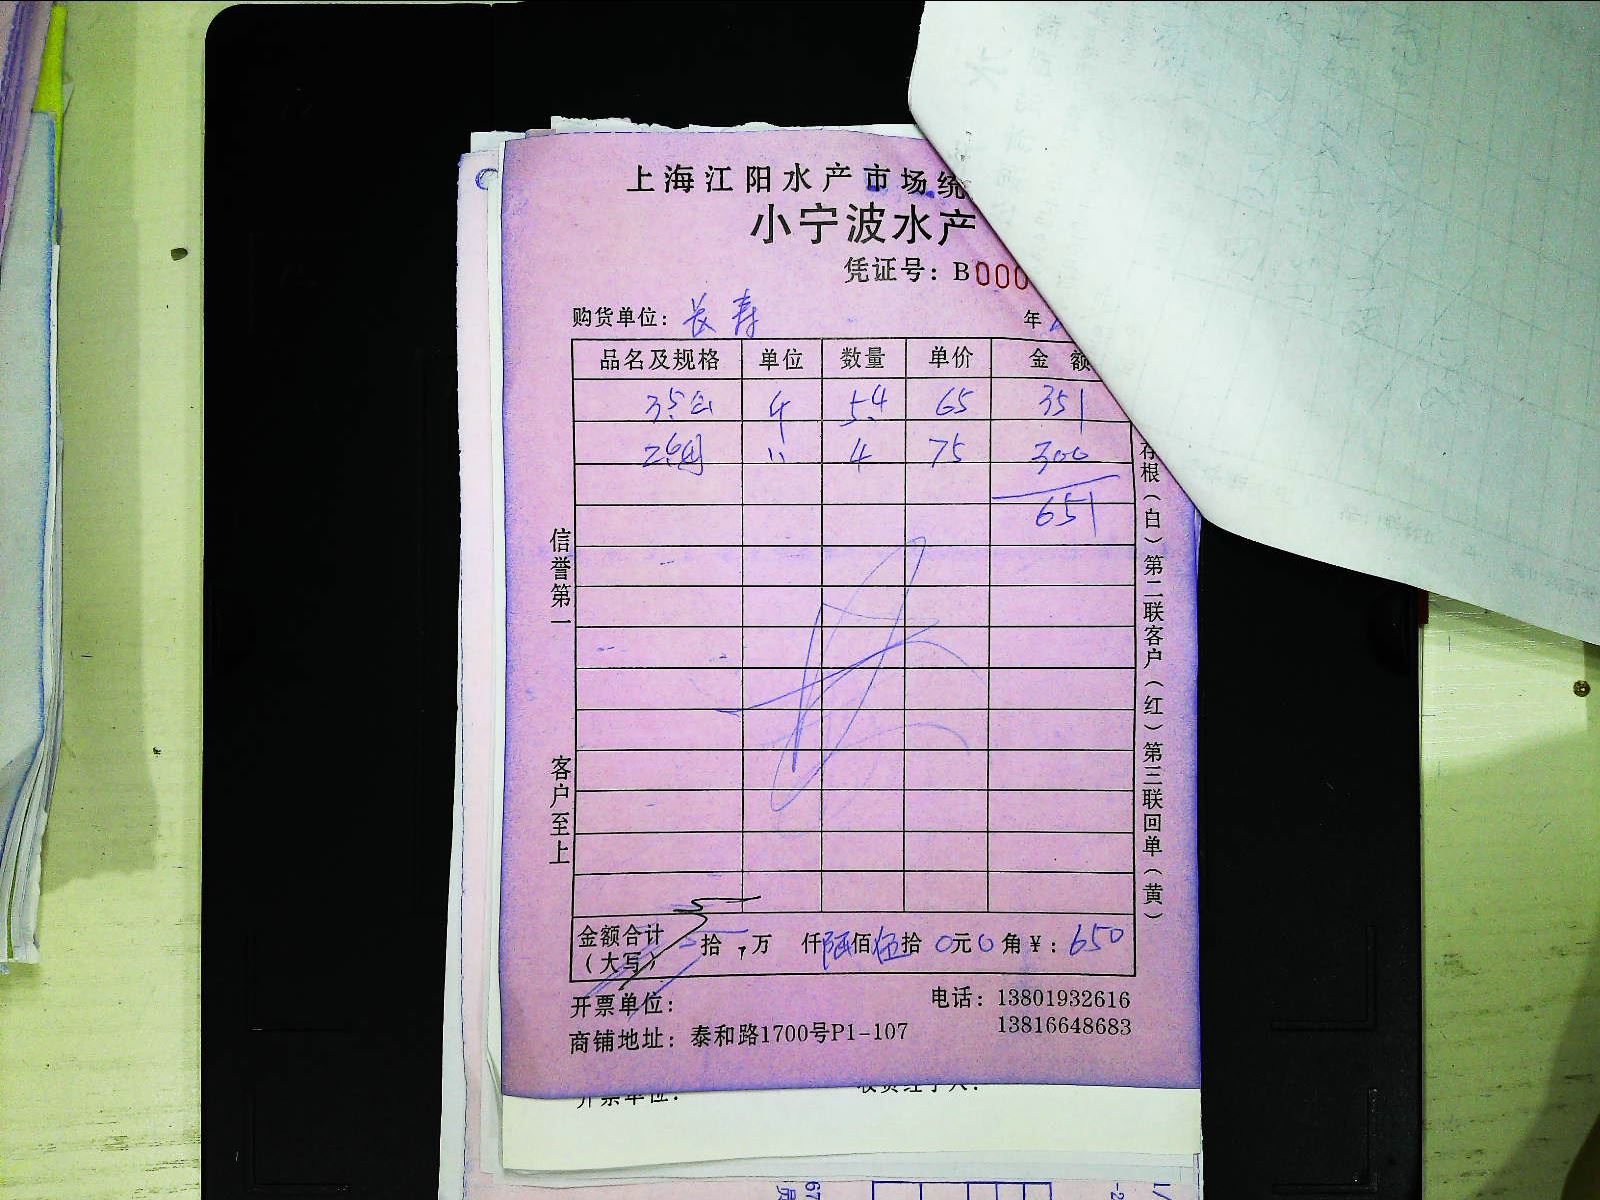 上海江阳水产市场统
小宁波水产
凭证号：B000
购货单位：长寿 年
品名及规格 单位 数量 单价 金额
4 5.4 65 351
〃 4 75 300
651
信誉第一
客户至上
存根（白）第二联客户（红）第三联回单（黄）
金额合计（大写） 拾 万 仟陆佰伍拾0元0角￥：650
开票单位：
电话：13801932616
13816648683
商铺地址：泰和路1700号P1-107
开票单位：